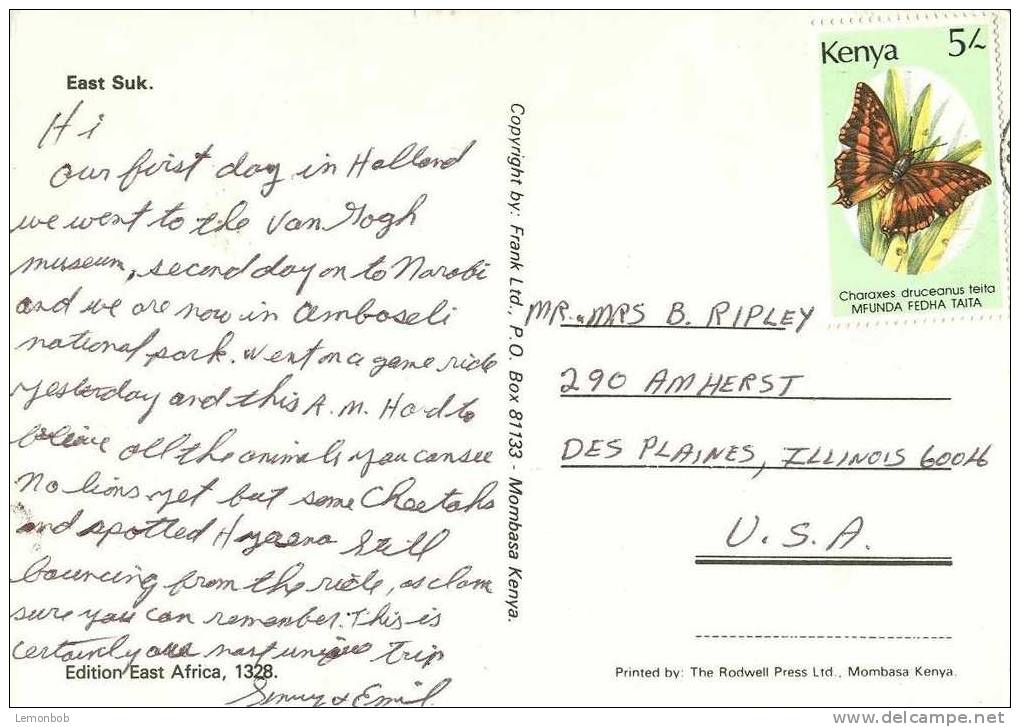 East Suk.
Hi
Our first day in Holland
we went to the Van Gogh
museum, second day on to Narobi
and we are now in Amboseli
national park. Went on a game ride
yesterday and this A.M. Hard to
all the animals you can see
No lions yet but some Cheetahs
and spotted Still
bouncing from the ride, as I am
sure you can remember. This is
certainly our most trip
& Emil
Edition East Africa, 1328.
Copyright by: Frank Ltd., P.O. Box 81133 - Mombasa Kenya.
Kenya 5/-
Charaxes druceanus teita
MFUNDA FEDHA TAITA
MR. & MRS B. RIPLEY
290 AMHERST
DES PLAINES, ILLINOIS 60016
U.S.A.
Printed by: The Rodwell Press Ltd., Mombasa Kenya.
Lemonbob
delcampe.net